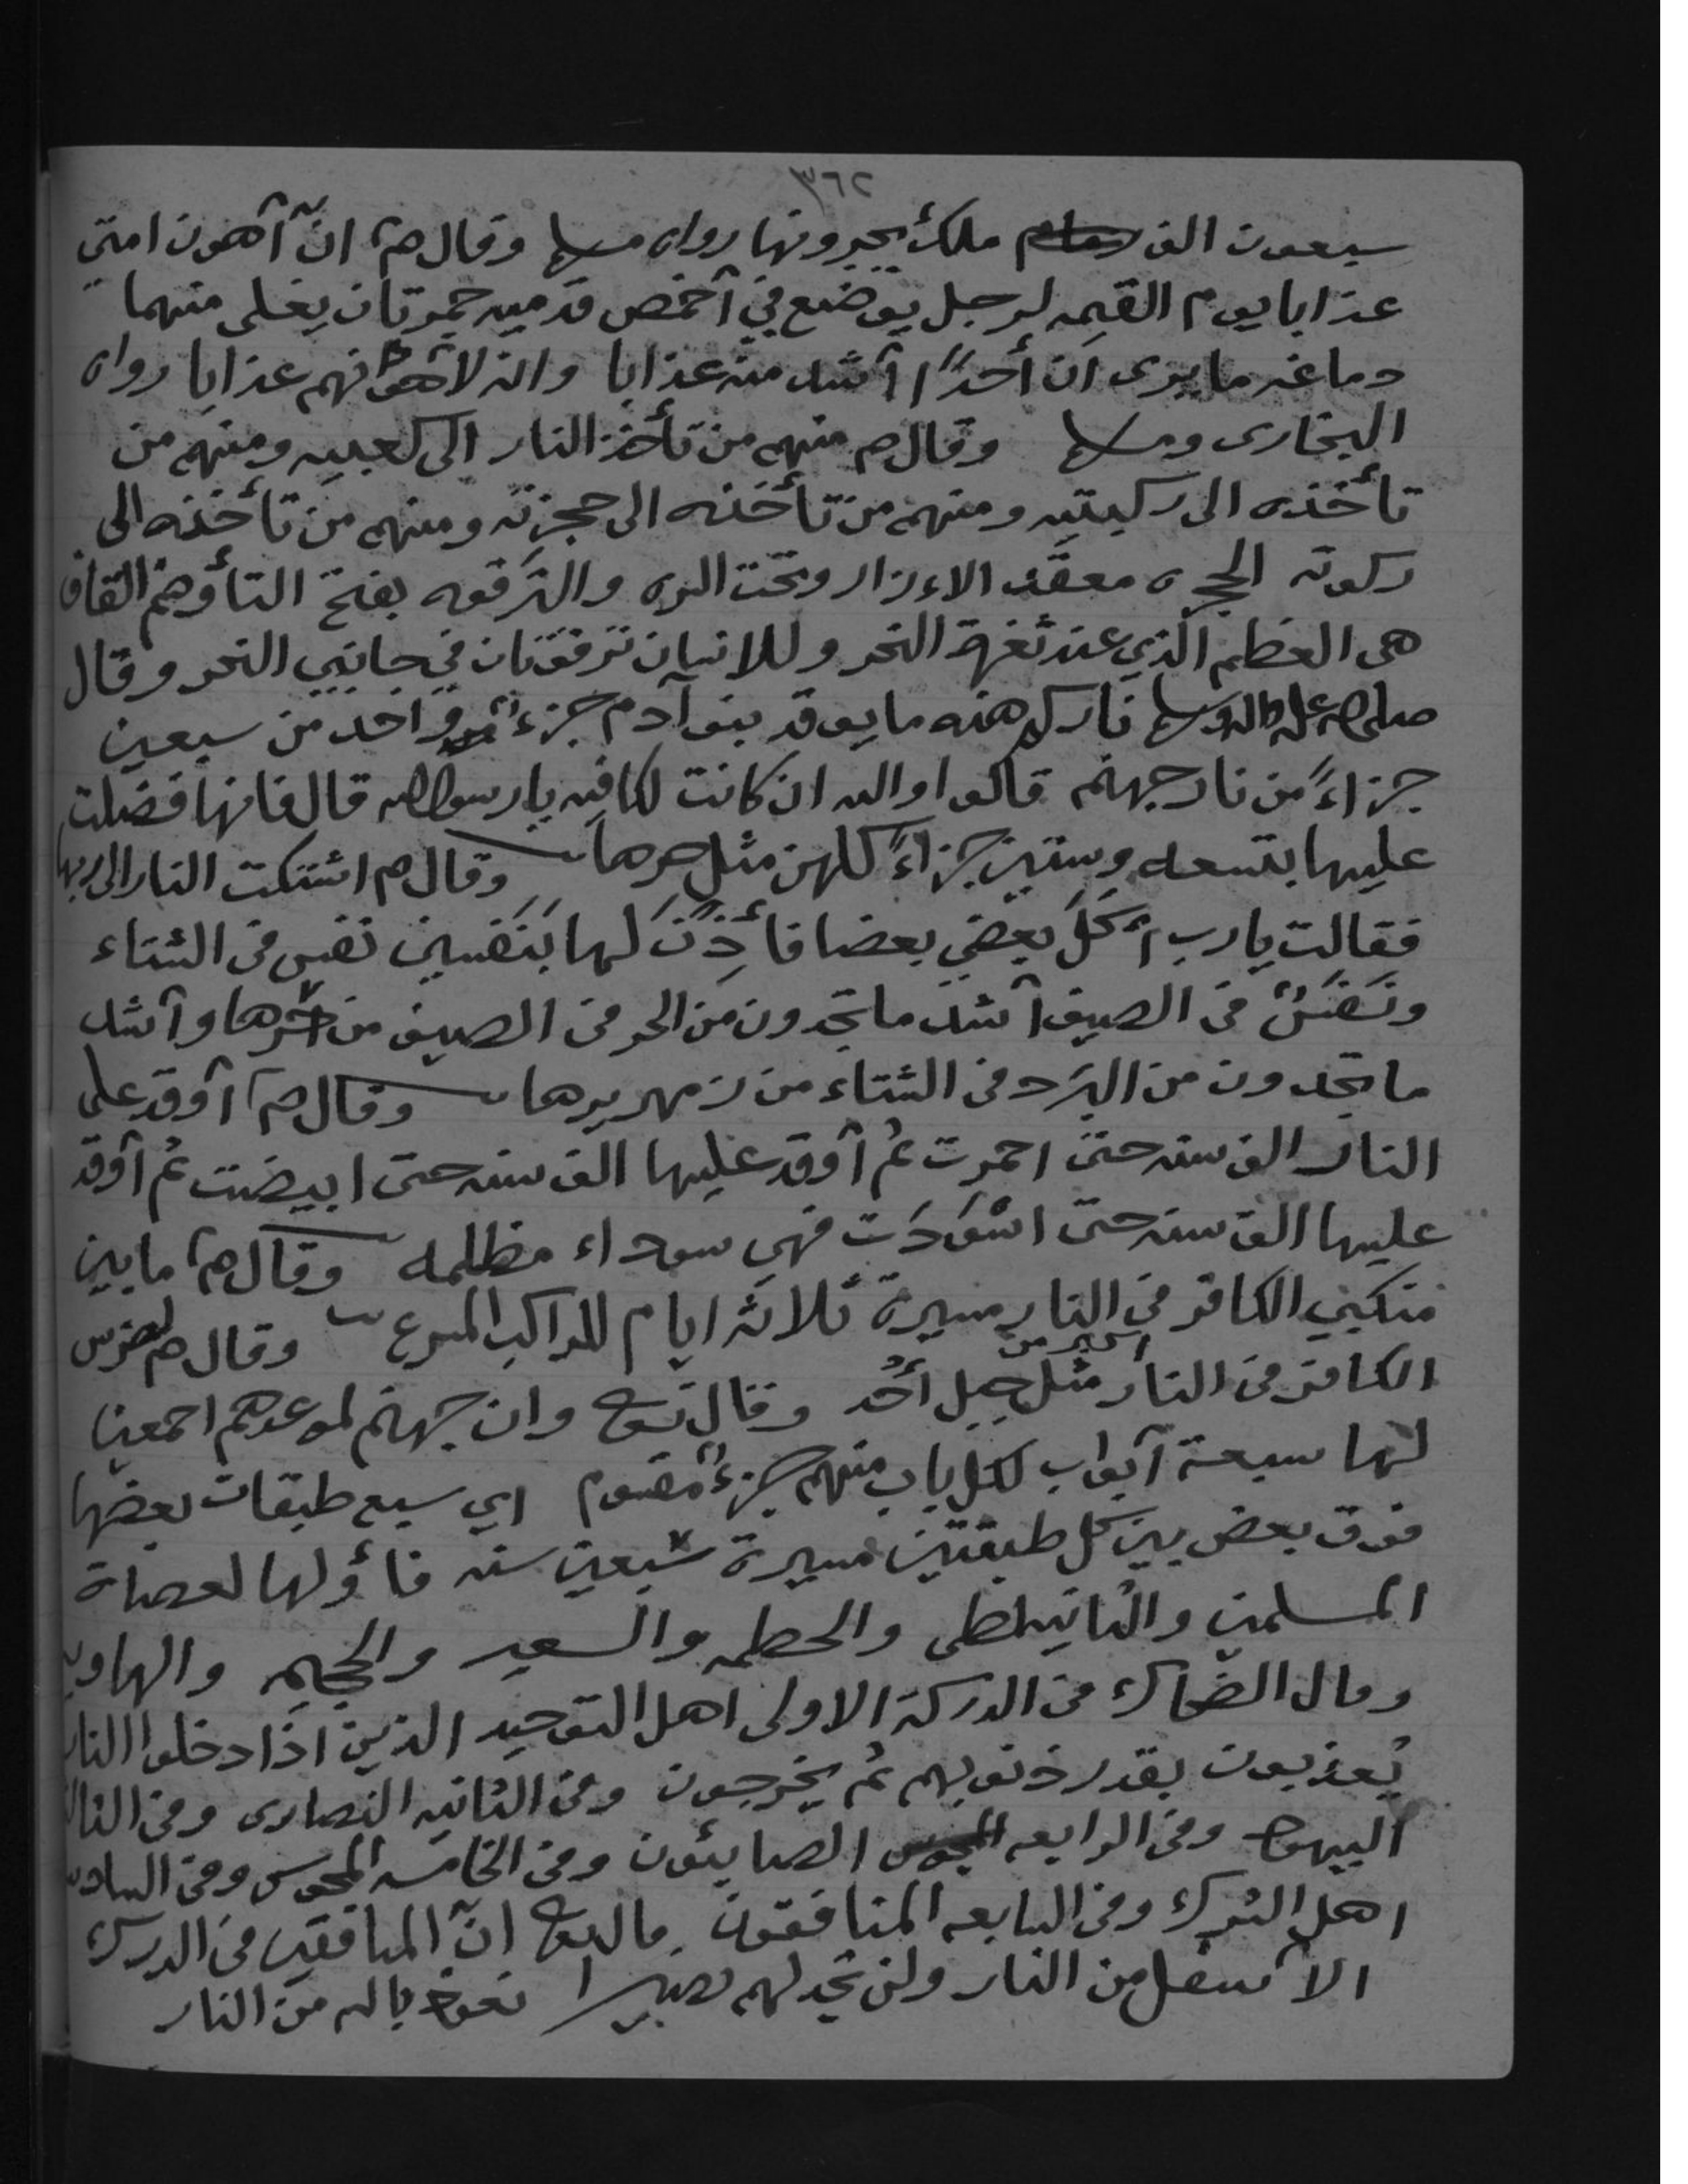 ٣٦٢
سبعون الف ملك يجرونها رواه مسلم وقال صم انّ آهون امتي
عذابا يوم القيمه لرجل يوضع في آخمص قدميه جمرتان يغلى منهما
دماغه ما يرى ان أحدًا آشد منه عذابا وانه لآهونهم عذابا رواه
البخارى ومسلم وقال صم منهم من تأخذ النار الى كعبيه ومنهم من
تأخذه الى ركبتيه ومنهم من تأخذه الى حجزته ومنهم من تأخذه الى
الحجزه معقد الاءزار وتحت السره والترقوه بفتح التاء وضم القاف
هى العظم الذي عند ثغرة النحر وللانسان ترقوتان في جانبي النحر وقال
صلى الله عليه واله وسلم ناركم هذه ما يوقد بنو آدم جزء واحد من سبعين
جزاءً من نار جهنم قالوا والله ان كانت لكافيه يا رسول الله قال فانها فضلت
عليها بتسعه وستين جزاءً كلهن مثل حرها وقال صم اشتكت النار الى ربها
فقالت يا رب آكل بعضي بعضا فأذن لها بنفسين نفس فى الشتاء
ونفس فى الصيف آشد ما تجدون من الحر فى الصيف من حرها وآشد
ما تجدون من البرد فى الشتاء من زمهريرها وقال صم آوقد على
النار الف سنه حتى احمرت ثم آوقد عليها الف سنه حتى ابيضت ثم آوقد
عليها الف سنه حتى اسْوَدَت فهى سوداء مظلمه وقال صم ما بين
منكبي الكافر فى النار مسيرة ثلاثه ايام للراكب المسرع وقال صم لضرس
الكافر فى النار اكبر من مثل جبل أحُد وقال تعالى وان جهنم لموعدهم اجمعين
لها سبعة آبواب لكل باب منهم جزءٌ مقسوم اي سبع طبقات بعضها
فوق بعض بين كل طبقتين مسيرة سبعين سنه فأولها لعصاة
المسلمين والثانيه لظى والحطمه والسعير والجحيم والهاويه
وقال الضحاك فى الدركة الاولى اهل التوحيد الذين اذا دخلوا النار
يُعذبون بقدر ذنوبهم ثم يخرجون وفى الثانيه النصارى وفى
اليهود وفى الرابعه الصابئون وفى الخامسه المجوس وفى السادسه
اهل الشرك وفى السابعه المنافقون قال تعالى انّ المنافقين فى الدرك
الاسفل من النار ولن تجد لهم نصيرا نعوذ بالله من النار